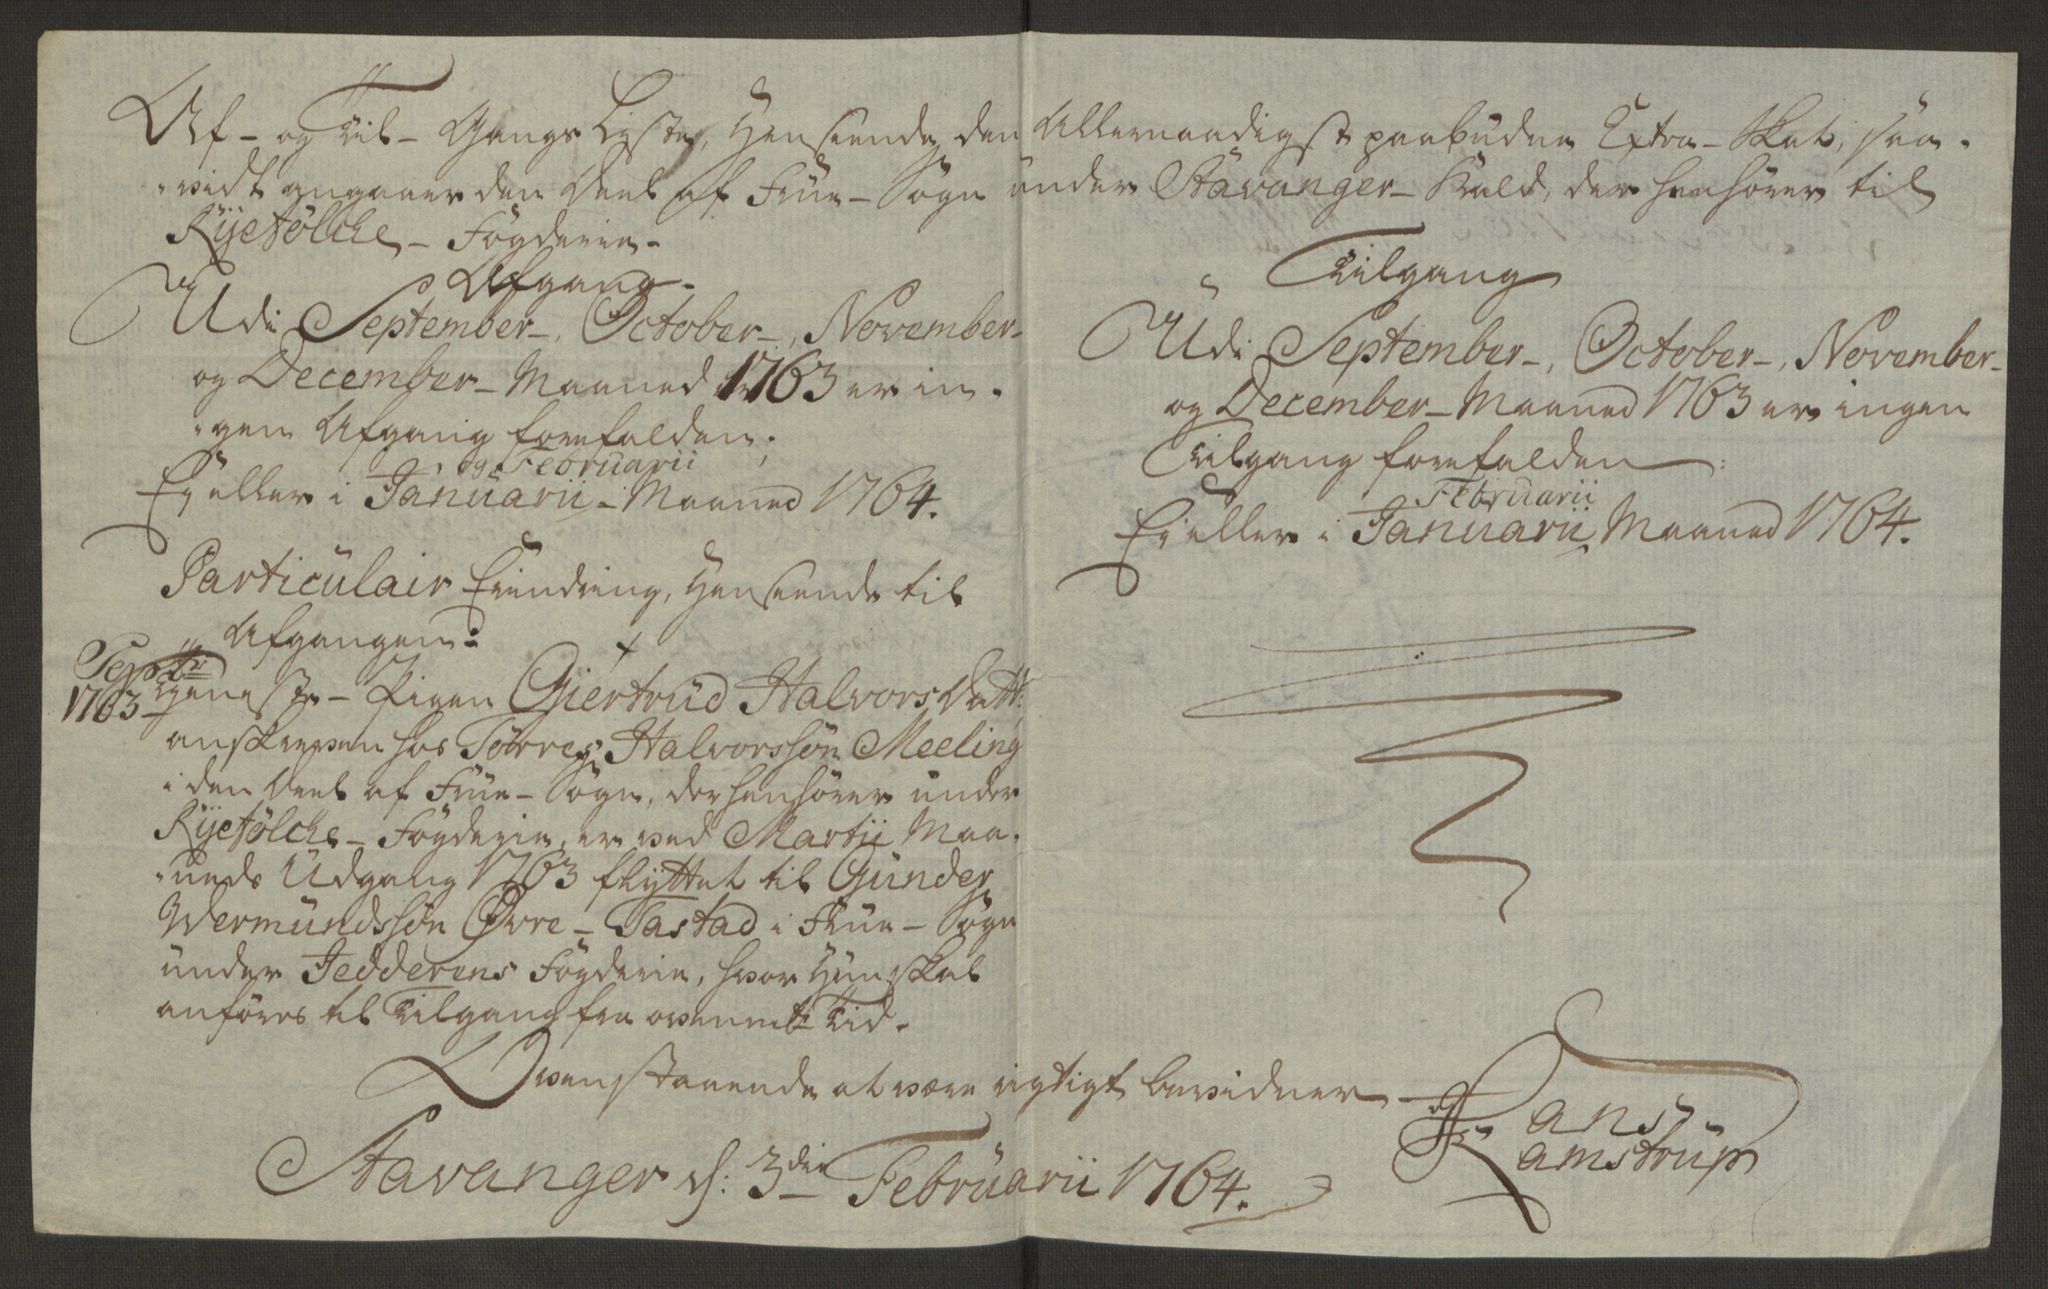 Af- og Til-Gangs Lister, Henseende den Allernaadigst paabudne Extra-Skat, saa-
-vidt angaaer den Deel af Frue-Sogn under Stavanger-Kald, der henhører til
Ryefølche-Fögderie.
Afgang.
Udi September-, October-, November-
og December-Maaned 1763 er in-
-gen Afgang forefalden;
og Februarii
Ej eller i Januarii-Maaned 1764.
Particulair Erindring, Henseende til
Afgangen:
Septbr
1763
Tieneste-Pigen Giertrud Halvors Datt:
anskreven hos Törres Halvorssön Meeling
i den Deel af Frue-Sogn, der henhører under
Ryefölche-Fögderie, er ved Martii Maa-
-neds Udgang 1763 flyttet til Gunder
Wermundssön Øvre-Tastad i Frue-Sogn
under Jedderens Fögderie, hvor Hun skal
anføres til Tilgang fra ovenmte Tid.
Tilgang
Udi September-, October-, November-
og December-Maaned 1763 er ingen
Tilgang forefalden:
Februarii
Ej eller i Januarii Maaned 1764.
Ovenstaaende at være rigtigt bevidner
Stavanger d: 3die Februarii 1764.
Hans
Ramstrup